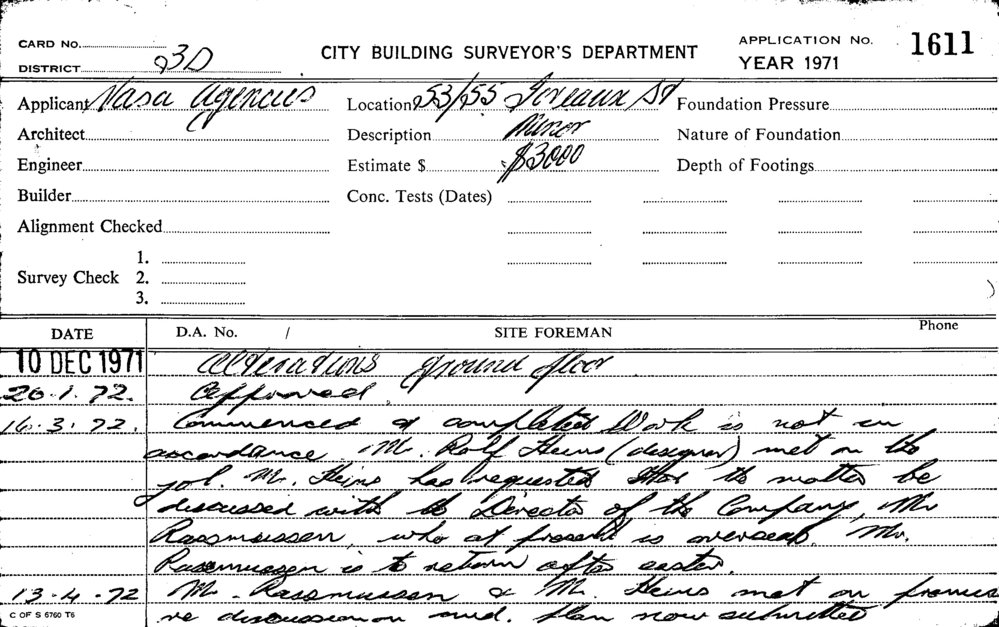 CARD No.
DISTRICT 3D
CITY BUILDING SURVEYOR'S DEPARTMENT
APPLICATION No. 1611
YEAR 1971
Applicant Vasa Agencies Location 53/55 Foveaux St Foundation Pressure
Architect Description Minor Nature of Foundation
Engineer Estimate $ $3000 Depth of Footings
Builder Conc. Tests (Dates)
Alignment Checked
Survey Check 1.
2.
3.
DATE D.A. No. / SITE FOREMAN Phone
10 DEC 1971 Alterations ground floor
20.1.72. Approved
16.3.72. Commenced & completed Work is not in
accordance. Mr. Rolf Heins (designer) met on the
job. Mr. Heins has requested that the matter be
discussed with the Director of the Company, Mr
Rassmussen, who at present is overseas. Mr.
Rassmussen is to return after easter.
13.4.72 Mr. Rassmussen & Mr. Heins met on premises
re discussion on amd. plan now submitted
C OF S 6760 T6